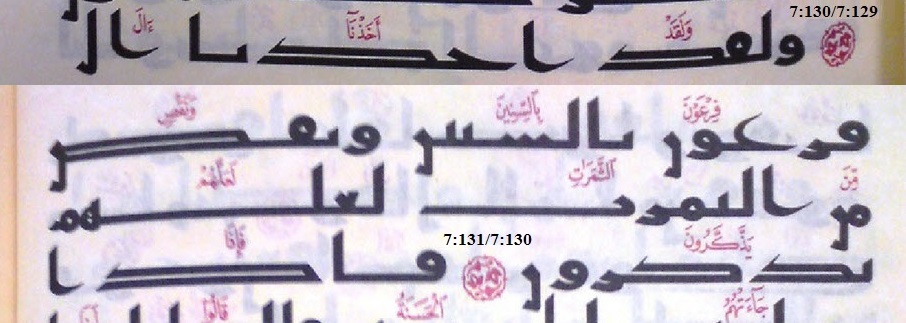 7:130/7:129
وَلَقَدْ أَخَذْنَآ ءَالَ
ولقد اخذنا ال
فِرْعَوْنَ بِالسِّنِينَ وَنَقْصٍ
فرعون بالسنين ونقص
مِّنَ الثَّمَرَاتِ لَعَلَّهُمْ
من الثمرت لعلهم
يَذَّكَّرُونَ 7:131/7:130 فَإِذَا
يذكرون فاذا
جَآءَتْهُمُ الْحَسَنَةُ قَالُوا لَنَا